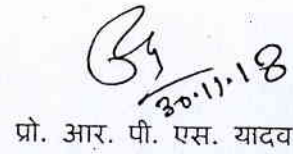 30.11.18
प्रो. आर. पी. एस. यादव